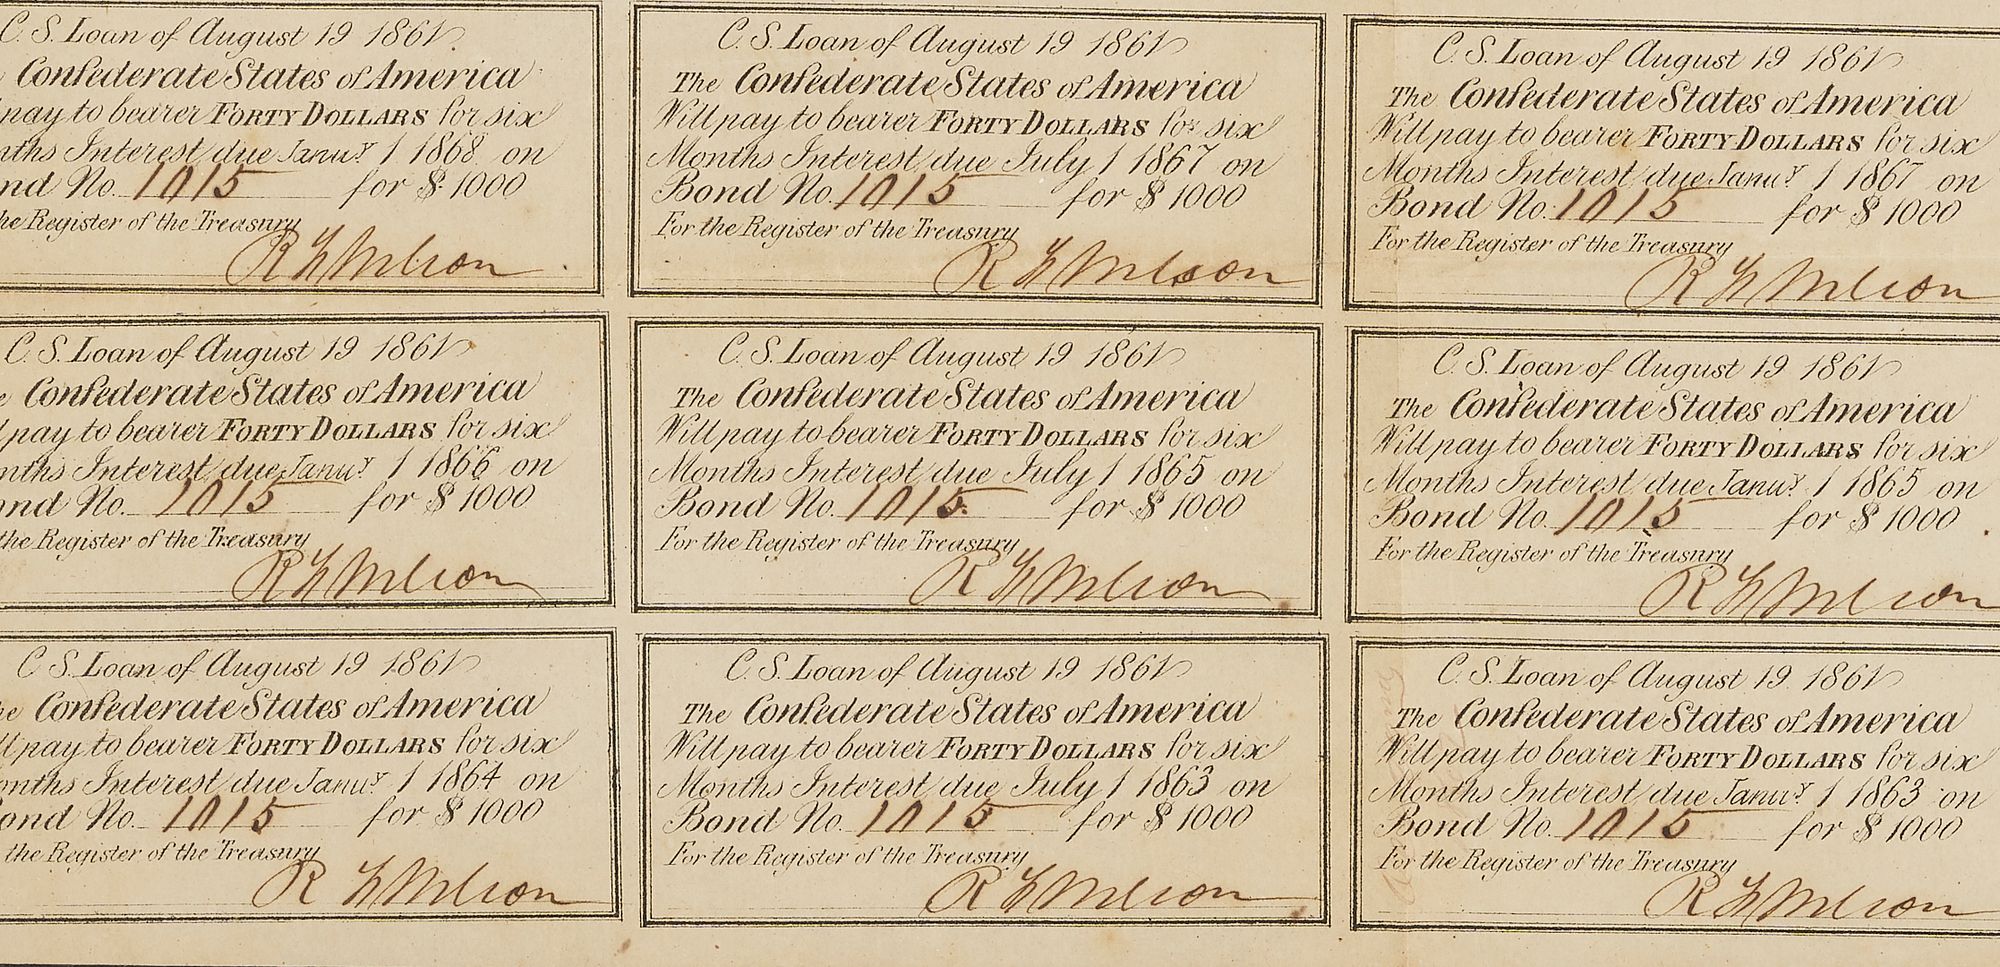 C. S. Loan of August 19 1861
Confederate States of America
pay to bearer FORTY DOLLARS for six
Interest due Janu.y 1 1868 on
No. 1015 for $ 1000
Register of the Treasury
R
C. S. Loan of August 19 1861
The Confederate States of America
Will pay to bearer FORTY DOLLARS for six
Months Interest due July 1 1867 on
Bond No. 1015 for $ 1000
For the Register of the Treasury
R
C. S. Loan of August 19 1861
The Confederate States of America
Will pay to bearer FORTY DOLLARS for six
Months Interest due Janu.y 1 1867 on
Bond No. 1015 for $ 1000
For the Register of the Treasury
R
C. S. Loan of August 19 1861
Confederate States of America
pay to bearer FORTY DOLLARS for six
Interest due Janu.y 1 1866 on
No. 1015 for $ 1000
the Register of the Treasury
R
C. S. Loan of August 19 1861
The Confederate States of America
Will pay to bearer FORTY DOLLARS for six
Months Interest due July 1 1865 on
Bond No. 1015 for $ 1000
For the Register of the Treasury
R
C. S. Loan of August 19 1861
The Confederate States of America
Will pay to bearer FORTY DOLLARS for six
Months Interest due Janu.y 1 1865 on
Bond No. 1015 for $ 1000
For the Register of the Treasury
R
C. S. Loan of August 19 1861
Confederate States of America
pay to bearer FORTY DOLLARS for six
Interest due Janu.y 1 1864 on
No. 1015 for $ 1000
the Register of the Treasury
R
C. S. Loan of August 19 1861
The Confederate States of America
Will pay to bearer FORTY DOLLARS for six
Months Interest due July 1 1863 on
Bond No. 1015 for $ 1000
For the Register of the Treasury
R
C. S. Loan of August 19 1861
The Confederate States of America
Will pay to bearer FORTY DOLLARS for six
Months Interest due Janu.y 1 1863 on
Bond No. 1015 for $ 1000
For the Register of the Treasury
R